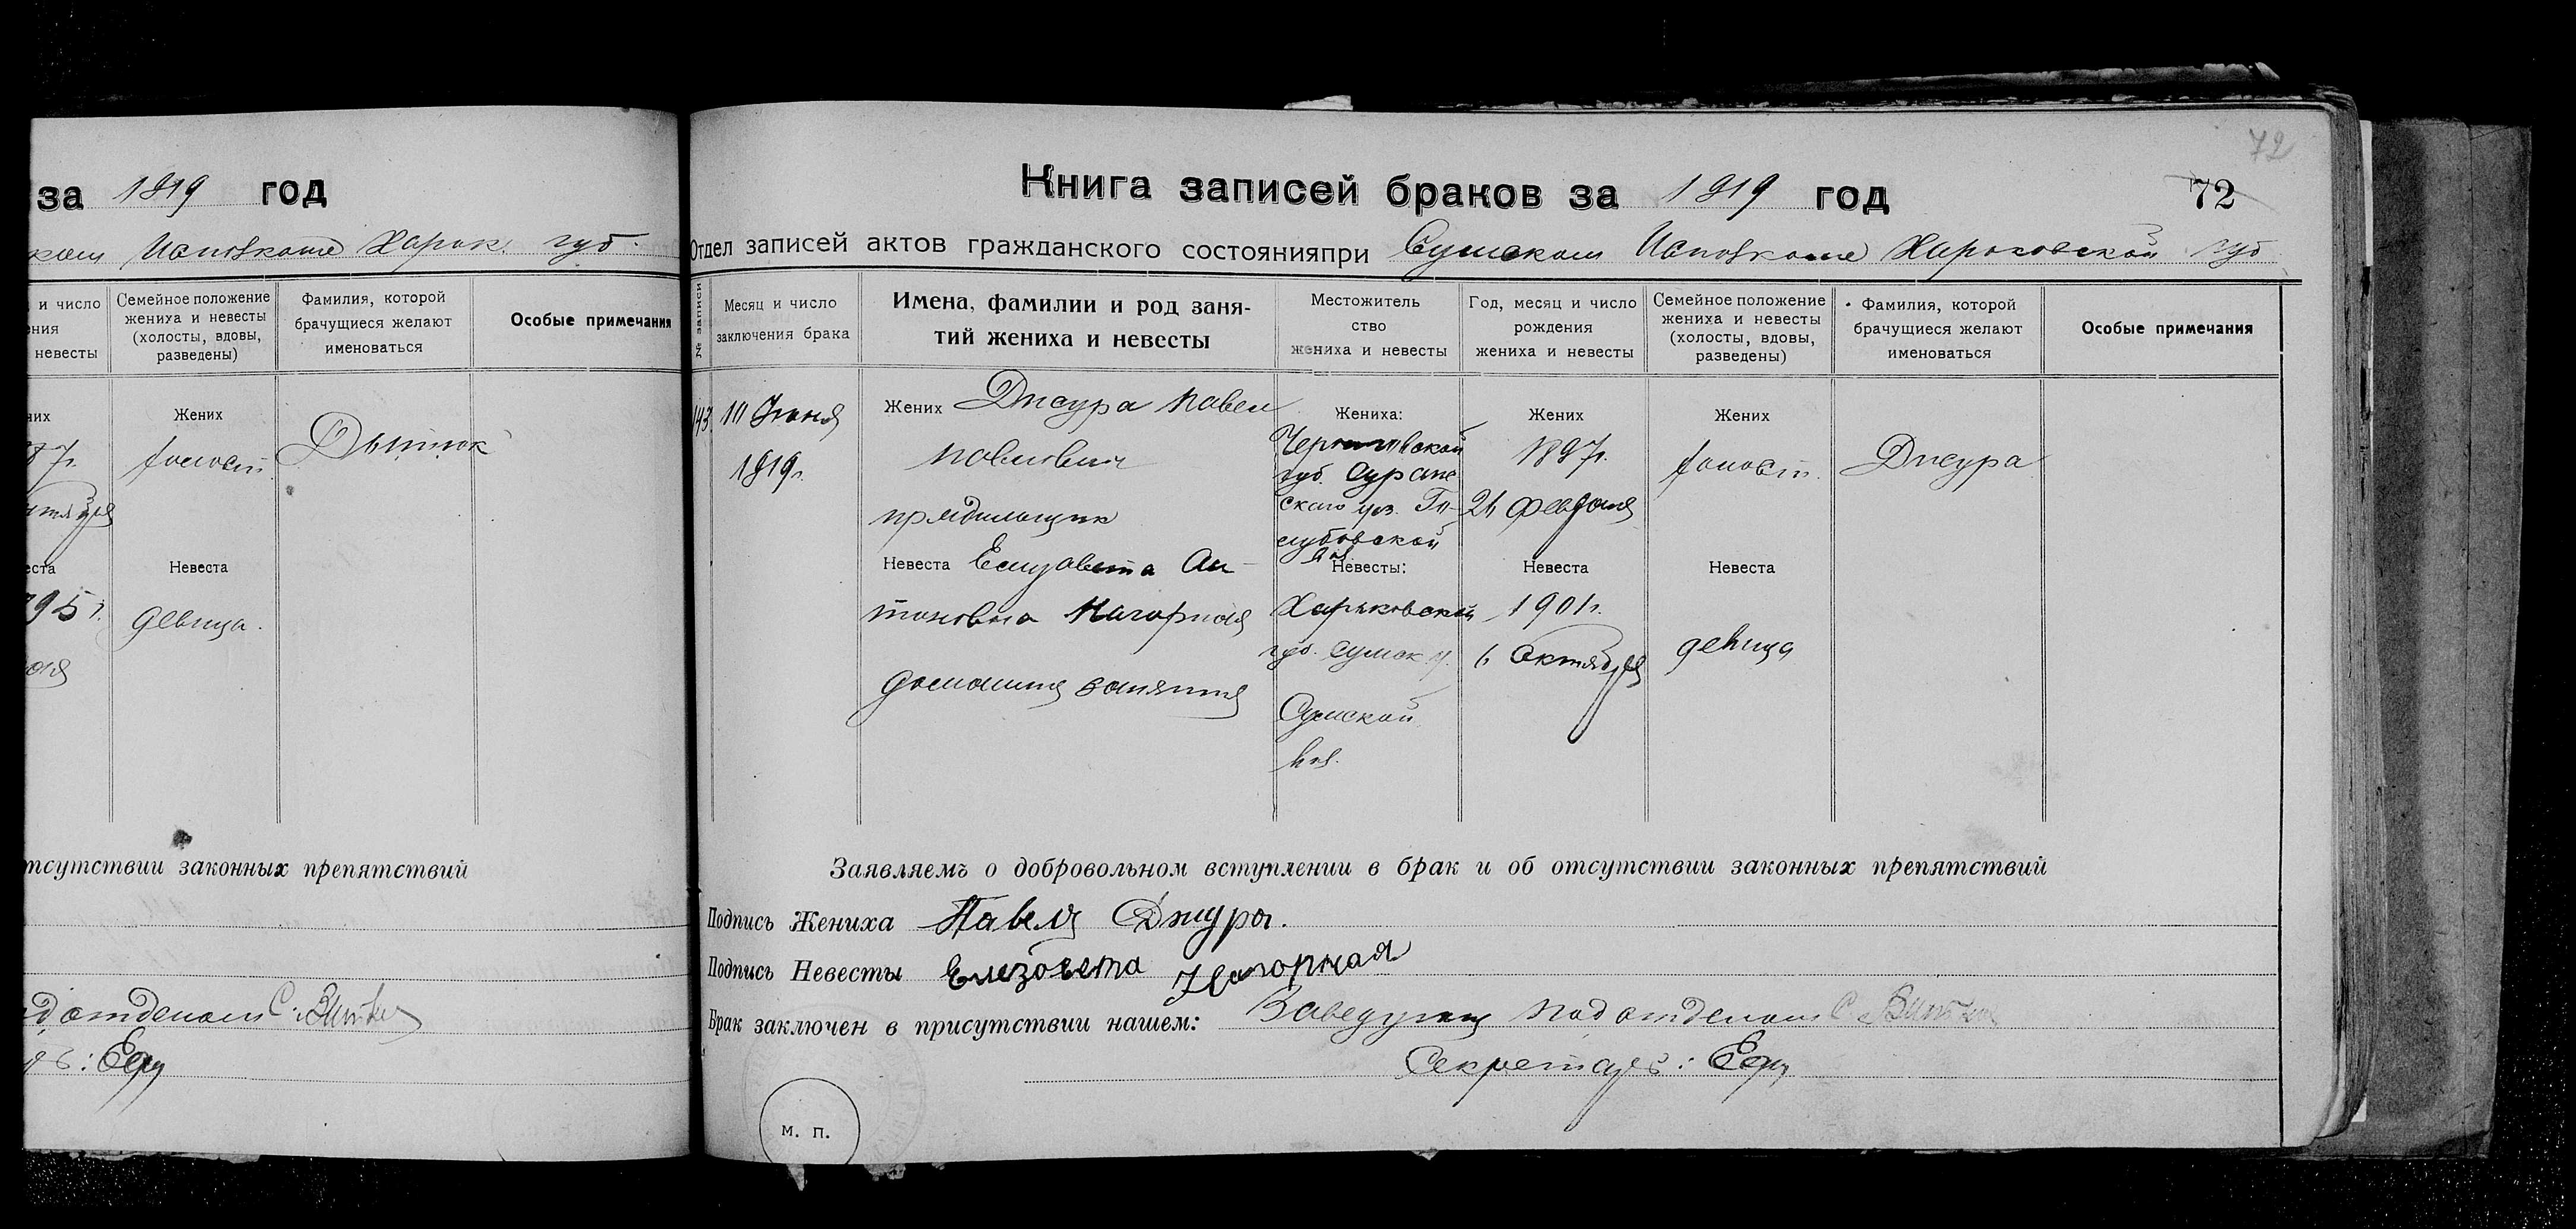 за 1919 год
Исполкоме Харьк. губ.
и число
невесты
Семейное положение
жениха и невесты
(холосты, вдовы,
разведены)
Фамилия, которой
брачущиеся желают
именоваться
Особые примечания
Жених
холост
Невеста
девица.
тсутствии законных препятствий
72
72
Книга записей браков за 1919 год
Отдел записей актов гражданского состояния при Сумском Исполкоме Харьковской губ
№ записи
Месяц и число
заключения брака
Имена, фамилии и род заня-
тий жениха и невесты
Местожитель
ство
жениха и невесты
Год, месяц и число
рождения
жениха и невесты
Семейное положение
жениха и невесты
(холосты, вдовы,
разведены)
Фамилия, которой
брачущиеся желают
именоваться
Особые примечания
143
Июня
1919г.
Жених Джура Павел
Павлович
прядильщик
Невеста Елизавета Ан-
тоновна Нагорная
домашния занятия
Жениха:
Черниговской
губ. Сураж-
ского уез.
вол.
Невесты:
Харьковской
губ. Сумск у.
Сумской
вол.
Жених
1897г.
Февраля
Невеста
1901г.
6 Октября
Жених
холост.
Невеста
девица
Джура
Заявляемъ о добровольном вступлении в брак и об отсутствии законных препятствий
Подпись Жениха Павел Джура.
Подпись Невесты Елезовета Нагорная
Брак заключен в присутствии нашем: Заведующ подотделом
Секретарь:
м. п.